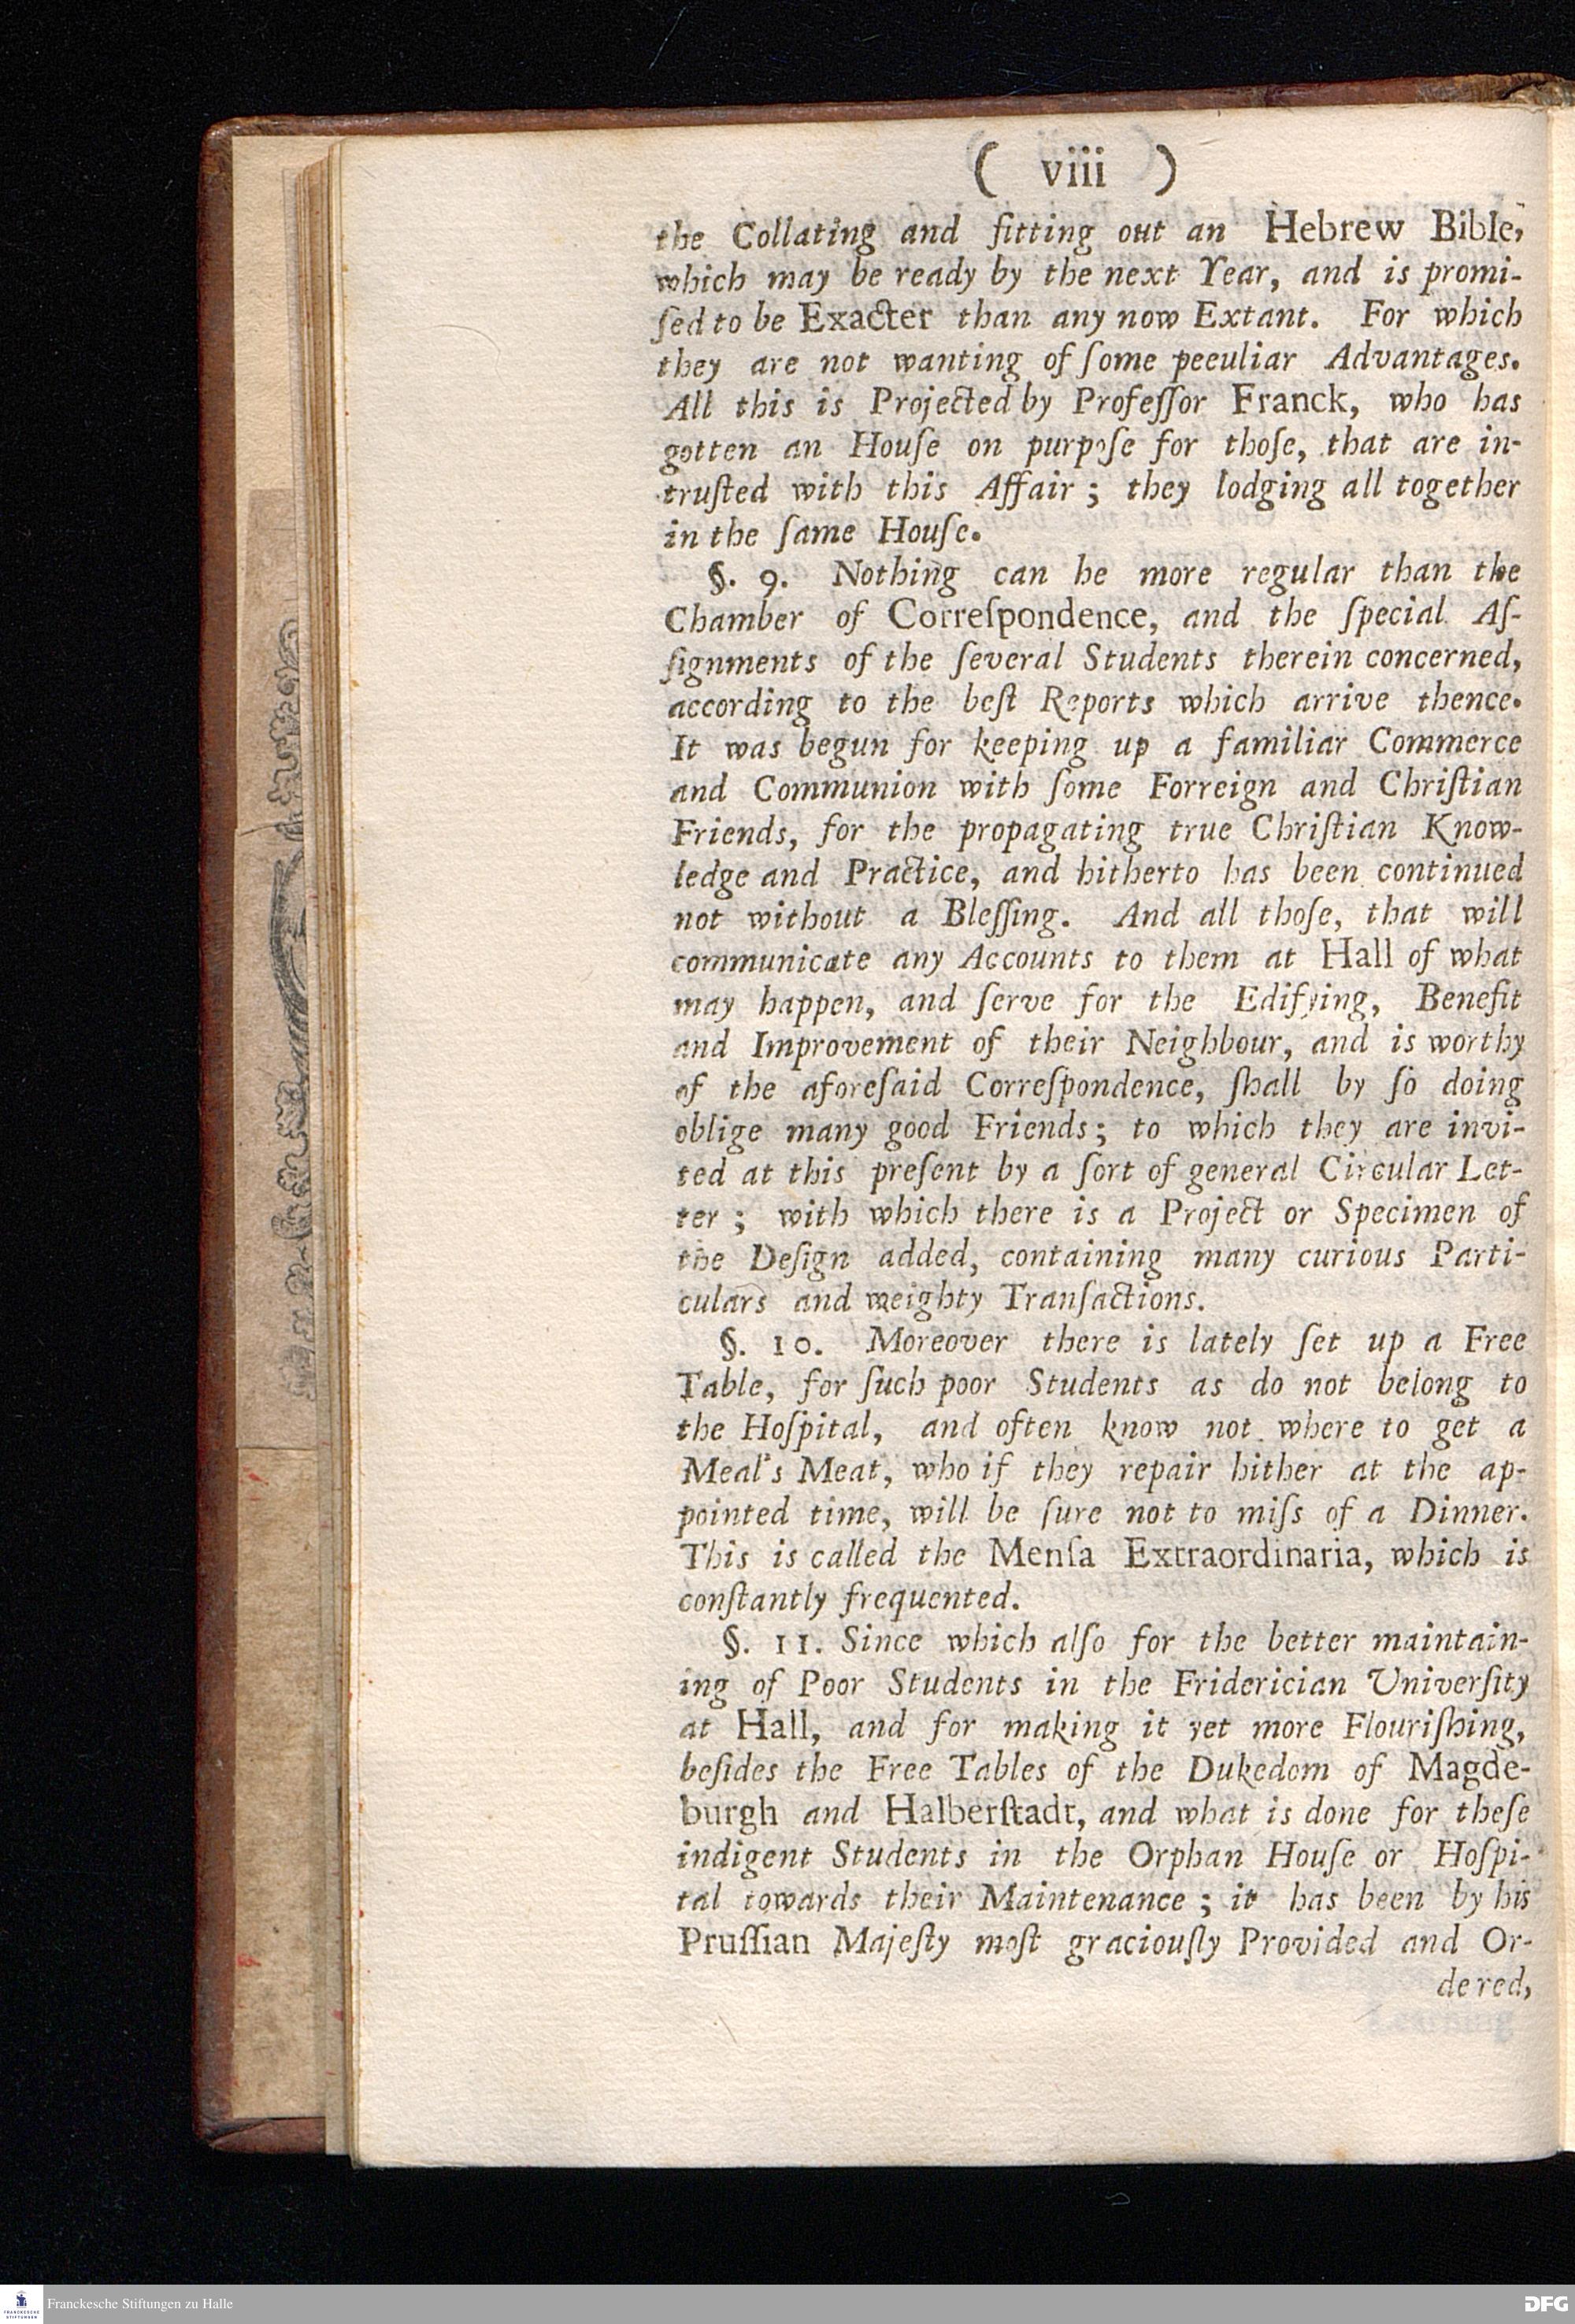 ( viii )
the Collating and fitting out an Hebrew Bible,
which may be ready by the next Year, and is promi-
ſed to be Exacter than any now Extant. For which
they are not wanting of ſome peeuliar Advantages.
All this is Projected by Profeſſor Franck, who has
gotten an Houſe on purpoſe for thoſe, that are in-
truſted with this Affair; they lodging all together
in the ſame Houſe.
§. 9. Nothing can he more regular than the
Chamber of Correſpondence, and the ſpecial Aſ-
ſignments of the ſeveral Students therein concerned,
according to the beſt Reports which arrive thence.
It was begun for keeping up a familiar Commerce
and Communion with ſome Forreign and Chriſtian
Friends, for the propagating true Chriſtian Know-
ledge and Practice, and hitherto has been continued
not without a Bleſſing. And all thoſe, that will
communicate any Accounts to them at Hall of what
may happen, and ſerve for the Edifying, Benefit
and Improvement of their Neighbour, and is worthy
of the aforeſaid Correſpondence, ſhall by ſo doing
oblige many good Friends; to which they are invi-
ted at this preſent by a ſort of general Circular Let-
ter; with which there is a Project or Specimen of
the Deſign added, containing many curious Parti-
culars and weighty Tranſactions.
§. 10. Moreover there is lately ſet up a Free
Table, for ſuch poor Students as do not belong to
the Hoſpital, and often know not where to get a
Meal's Meat, who if they repair hither at the ap-
pointed time, will be ſure not to miſs of a Dinner.
This is called the Menſa Extraordinaria, which is
conſtantly frequented.
§. 11. Since which alſo for the better maintain-
ing of Poor Students in the Friderician Univerſity
at Hall, and for making it yet more Flouriſhing,
beſides the Free Tables of the Dukedom of Magde-
burgh and Halberſtadt, and what is done for theſe
indigent Students in the Orphan Houſe or Hoſpi-
tal towards their Maintenance; it has been by his
Pruſſian Majeſty moſt graciouſly Provided and Or-
dered,
Franckesche Stiftungen zu Halle
FRANCKESCHE
STIFTUNGEN
DFG